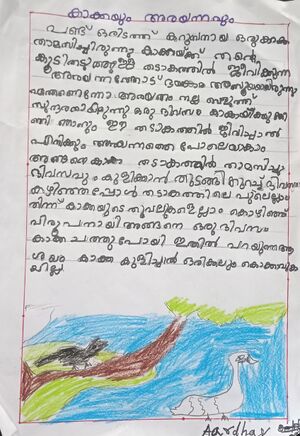 കാക്കയും അരയന്നവും
പണ്ട് ഒരിടത്ത് കറുമ്പനായ ഒരുകാക്ക
താമസിച്ചിരുന്നു കാക്കയ്ക്ക് തന്റെ
കൂടിനടുത്തുള്ള തടാകത്തിൽ ജീവിക്കുന്ന
അരയന്നത്തോട് ഭയങ്കര അസൂയയായിരുന്നു
എന്തെന്നോ അരയന്നം നല്ല വെളുത്ത്
സുന്ദരനായിരുന്നു ഒരു ദിവസം കാക്കയ്ക്ക് തോ
ന്നി ഞാനും ഈ തടാകത്തിൽ ജീവിച്ചാൽ
എനിക്കും അരയന്നത്തെ പോലെയാകാം
അങ്ങനെ കാക്ക തടാകത്തിൽ താമസിച്ചു
ദിവസവും കുളിക്കാൻ തുടങ്ങി കുറച്ച് ദിവസം
കഴിഞ്ഞപ്പോൾ തടാകത്തിലെ
നിന്ന് കാക്കയുടെ തൂവലുകളെല്ലാം കൊഴിഞ്ഞ്
വിരൂപനായി അങ്ങനെ ഒരു ദിവസം
കാക്ക ചത്തുപോയി ഇതിൽ പറയുന്നത്
കാക്ക കുളിച്ചാൽ ഒരിക്കലും കൊക്കാവു
കയില്ല
Aardhav